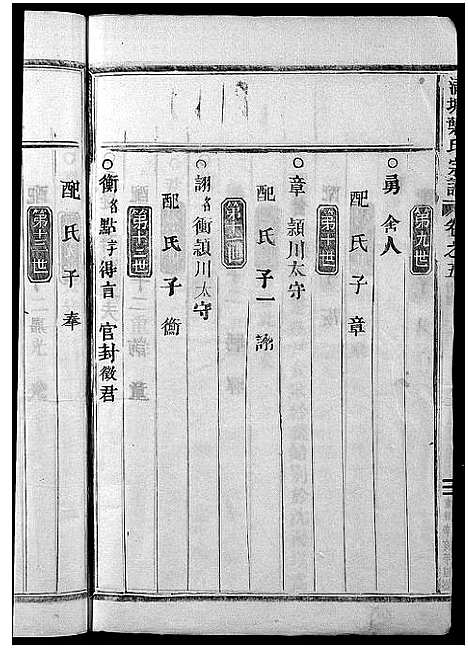 葉氏宗譜 卷之五
第九世
勇 舍人
配 氏 子章
第十世
章 潁川太守
配 氏 子一
第十一世
衡潁川太守
配 氏 子衡
第十二世
衡 官封徵君
第十三世
配 氏 子奉